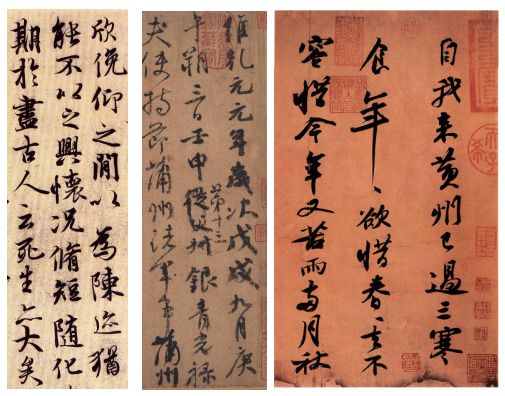 欣俛仰之間以為陳迹猶
能不以之興懷況脩短隨化
期於盡古人云死生亦大矣
維乾元元年歲次戊戌九月庚
午朔三日壬申第十三從父叔銀青光祿
夫使持節蒲州諸軍事蒲州
自我來黃州已過三寒
食年〻欲惜春〻去不
容惜今年又苦雨兩月秋